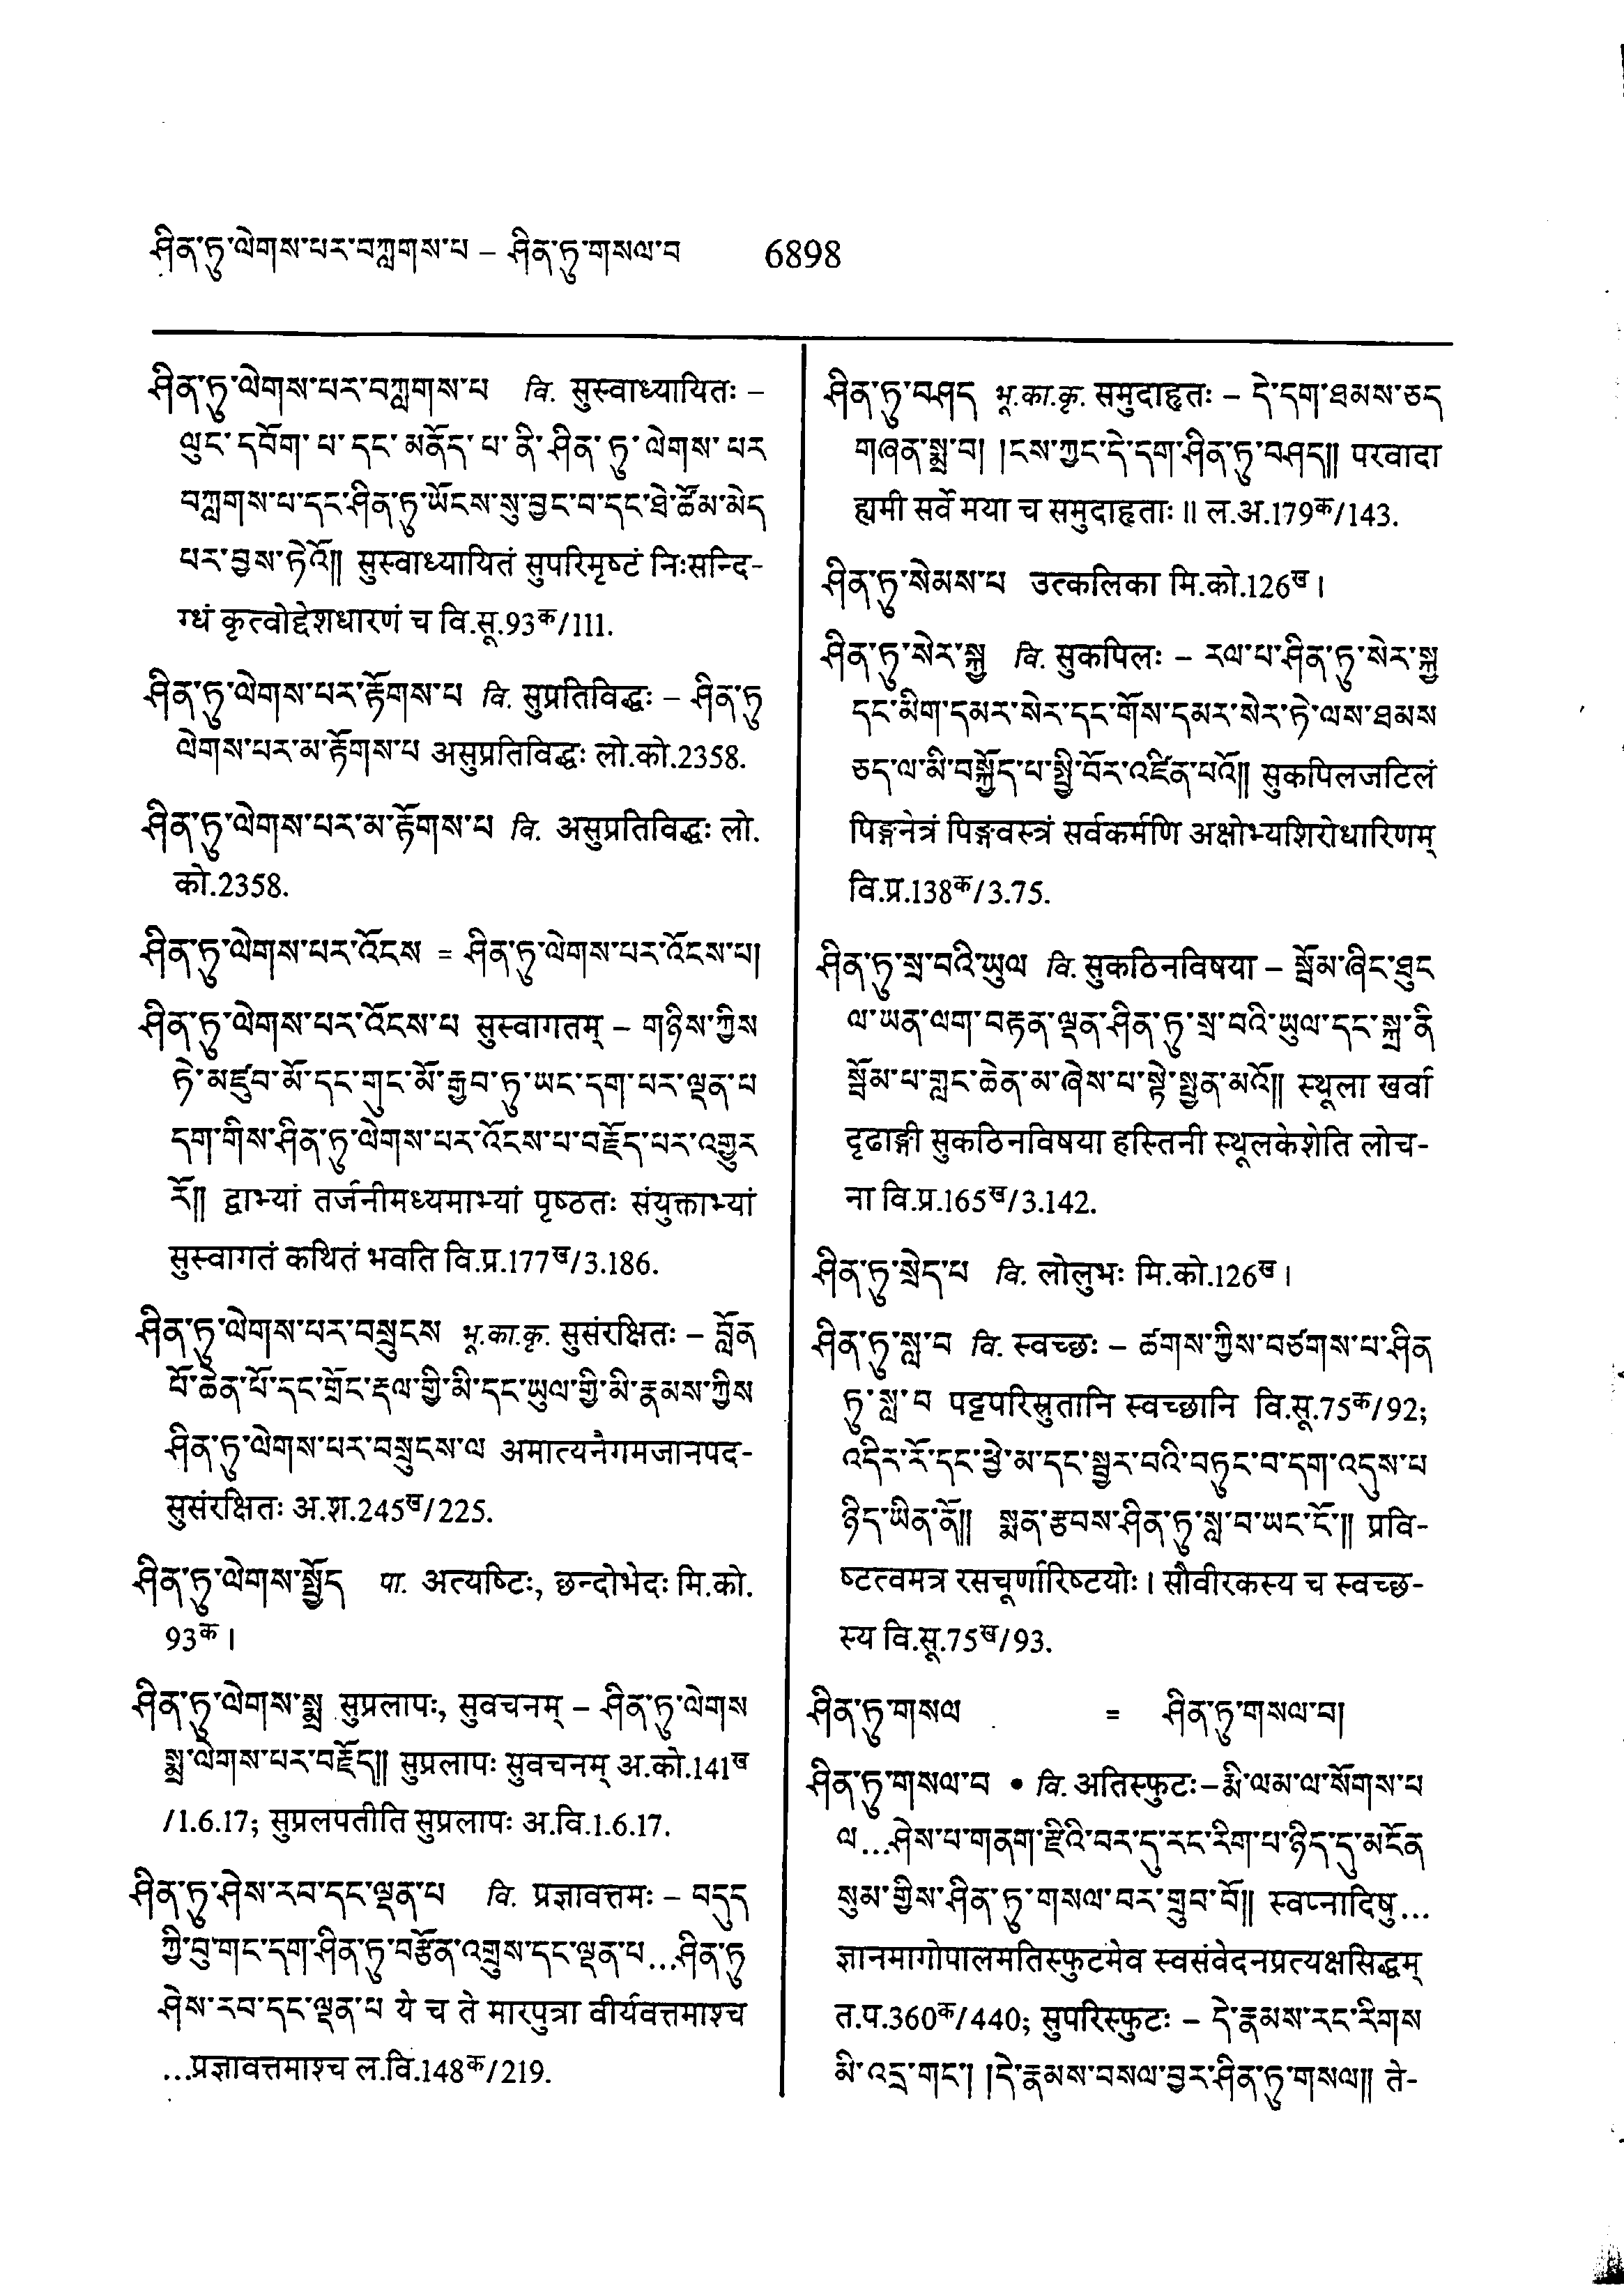 ཤིན་ཏུ་ལེགས་པར་བཀླགས་པ – ཤིན་ཏུ་གསལ་བ 6898
ཤིན་ཏུ་ལེགས་པར་བཀླགས་པ वि. सुस्वाध्यायितः –
ལུང་དབོག་པ་དང་མནོད་པ་ནི་ཤིན་ཏུ་ལེགས་པར
བཀླགས་པ་དང་ཤིན་ཏུ་ཡོངས་སུ་བྱང་བ་དང་ཐེ་ཚོམ་མེད
པར་བྱས་ཏེའོ།། सुस्वाध्यायितं सुपरिमृष्टं निःसन्दि-
ग्धं कृत्वोद्देशधारणं च वि.सू.93क/111.
ཤིན་ཏུ་ལེགས་པར་རྟོགས་པ वि. सुप्रतिविद्धः – ཤིན་ཏུ
ལེགས་པར་མ་རྟོགས་པ असुप्रतिविद्धः लो.को.2358.
ཤིན་ཏུ་ལེགས་པར་མ་རྟོགས་པ वि. असुप्रतिविद्धः लो.
को.2358.
ཤིན་ཏུ་ལེགས་པར་འོངས = ཤིན་ཏུ་ལེགས་པར་འོངས་པ།
ཤིན་ཏུ་ལེགས་པར་འོངས་པ सुस्वागतम् – གཉིས་ཀྱིས
ཏེ་མཛུབ་མོ་དང་གུང་མོ་རྒྱབ་ཏུ་ཡང་དག་པར་ལྡན་པ
དག་གིས་ཤིན་ཏུ་ལེགས་པར་འོངས་པ་བརྗོད་པར་འགྱུར
རོ།། द्वाभ्यां तर्जनीमध्यमाभ्यां पृष्ठतः संयुक्ताभ्यां
सुस्वागतं कथितं भवति वि.प्र.177ख/3.186.
ཤིན་ཏུ་ལེགས་པར་བསྲུངས भू.का.कृ. सुसंरक्षितः – བློན
པོ་ཆེན་པོ་དང་གྲོང་རྡལ་གྱི་མི་དང་ཡུལ་གྱི་མི་རྣམས་ཀྱིས
ཤིན་ཏུ་ལེགས་པར་བསྲུངས་ལ अमात्यनैगमजानपद-
सुसंरक्षितः अ.श.245ख/225.
ཤིན་ཏུ་ལེགས་སྤྱོད पा. अत्यष्टिः, छन्दोभेदः मि.को.
93क ।
ཤིན་ཏུ་ལེགས་སྨྲ सुप्रलापः, सुवचनम् – ཤིན་ཏུ་ལེགས
སྨྲ་ལེགས་པར་བརྗོད།། सुप्रलापः सुवचनम् अ.को.141ख
/1.6.17; सुप्रलपतीति सुप्रलापः अ.वि.1.6.17.
ཤིན་ཏུ་ཤེས་རབ་དང་ལྡན་པ वि. प्रज्ञावत्तमः – བདུད
ཀྱི་བུ་གང་དག་ཤིན་ཏུ་བརྩོན་འགྲུས་དང་ལྡན་པ...ཤིན་ཏུ
ཤེས་རབ་དང་ལྡན་པ ये च ते मारपुत्रा वीर्यवत्तमाश्च
...प्रज्ञावत्तमाश्च ल.वि.148क/219.
ཤིན་ཏུ་བཤད भू.का.कृ. समुदाहृतः – དེ་དག་ཐམས་ཅད
གཞན་སྨྲ་བ། །ངས་ཀྱང་དེ་དག་ཤིན་ཏུ་བཤད།། परवादा
ह्यमी सर्वे मया च समुदाहृताः ॥ ल.अ.179क/143.
ཤིན་ཏུ་སེམས་པ उत्कलिका मि.को.126ख ।
ཤིན་ཏུ་སེར་སྐྱ वि. सुकपिलः – རལ་པ་ཤིན་ཏུ་སེར་སྐྱ
དང་མིག་དམར་སེར་དང་གོས་དམར་སེར་ཏེ་ལས་ཐམས
ཅད་ལ་མི་བསྐྱོད་པ་སྤྱི་བོར་འཛིན་པའོ།། सुकपिलजटिलं
पिङ्गनेत्रं पिङ्गवस्त्रं सर्वकर्मणि अक्षोभ्यशिरोधारिणम्
वि.प्र.138क/3.75.
ཤིན་ཏུ་སྲ་བའི་ཡུལ वि. सुकठिनविषया – སྦོམ་ཞིང་ཐུང
ལ་ཡན་ལག་བརྟན་ལྡན་ཤིན་ཏུ་སྲ་བའི་ཡུལ་དང་སྐྲ་ནི
སྦོམ་པ་གླང་ཆེན་མ་ཞེས་པ་སྟེ་སྤྱན་མའོ།། स्थूला खर्वा
दृढाङ्गी सुकठिनविषया हस्तिनी स्थूलकेशेति लोच-
ना वि.प्र.165ख/3.142.
ཤིན་ཏུ་སྲེད་པ वि. लोलुभः मि.को.126ख ।
ཤིན་ཏུ་སླ་བ वि. स्वच्छः – ཚགས་ཀྱིས་བཙགས་པ་ཤིན
ཏུ་སླ་བ पट्टपरिस्रुतानि स्वच्छानि वि.सू.75क/92;
འདིར་རོ་དང་ཕྱེ་མ་དང་སྦྱར་བའི་བཏུང་བ་དག་འདུས་པ
ཉིད་ཡིན་ནོ།། སྨན་རྩབས་ཤིན་ཏུ་སླ་བ་ཡང་ངོ་།། प्रवि-
ष्टत्वमत्र रसचूर्णारिष्टयोः । सौवीरकस्य च स्वच्छ-
स्य वि.सू.75ख/93.
ཤིན་ཏུ་གསལ = ཤིན་ཏུ་གསལ་བ།
ཤིན་ཏུ་གསལ་བ • वि. अतिस्फुटः–རྨི་ལམ་ལ་སོགས་པ
ལ...ཤེས་པ་གནག་རྫིའི་བར་དུ་རང་རིག་པ་ཉིད་དུ་མངོན
སུམ་གྱིས་ཤིན་ཏུ་གསལ་བར་གྲུབ་བོ།། स्वप्नादिषु...
ज्ञानमागोपालमतिस्फुटमेव स्वसंवेदनप्रत्यक्षसिद्धम्
त.प.360क/440; सुपरिस्फुटः – དེ་རྣམས་རང་རིགས
མི་འདྲ་གང་། །དེ་རྣམས་བསལ་བྱར་ཤིན་ཏུ་གསལ།། ते-